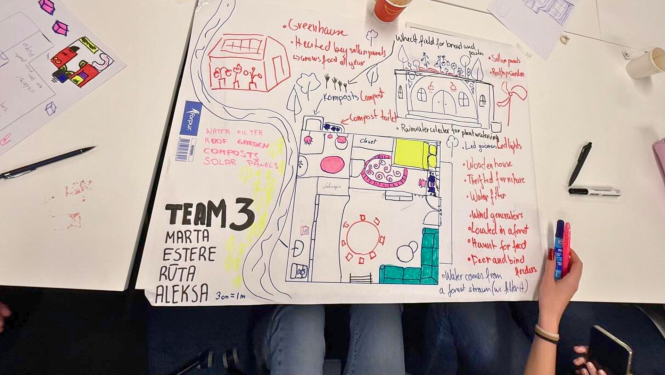 • Greenhouse
• Heated by sollar panels
Wheat field for bread and
• Sollar panels
• Roof garden
Komposts Compost
• Compost toilet
• Rainwater collector for plant watering
• Led
lights
WATER FILTER
ROOF GARDEN
COMPOSTS
SOLAR PANELS
closet
• Wooden house
• Thrifted furniture
• Water filter
• Wind generators
• Located in a forest
• Haunt for food
• Deer and bird
feeders
TEAM 3
MARTA
ESTERE
RŪTA
ALEKSA
3cm = 1m
• Water comes from
a forest stream (we filter it)